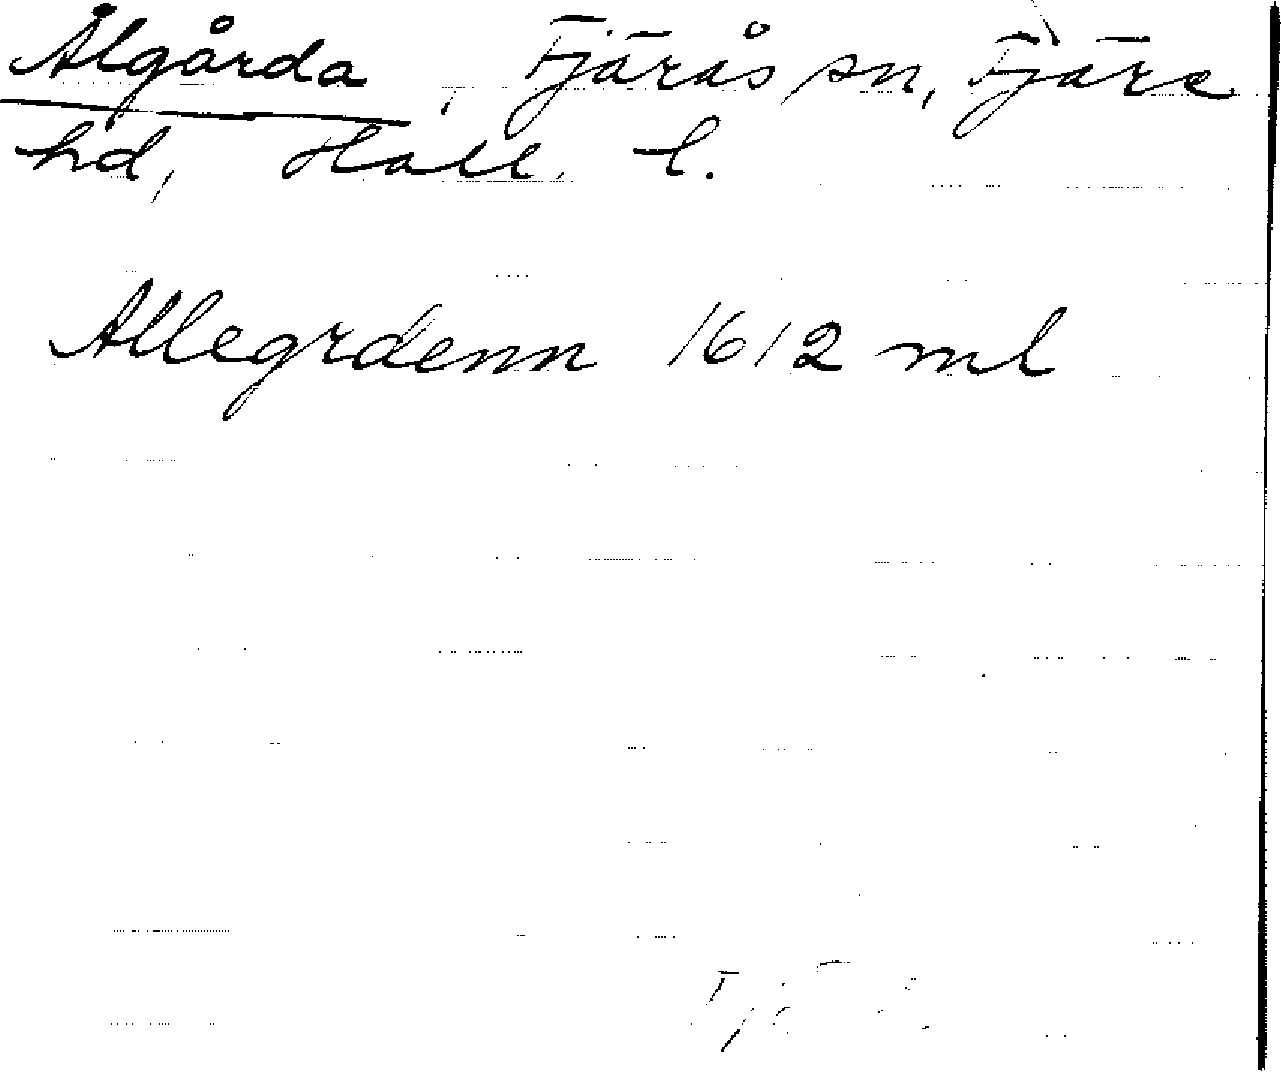 Ålgårda, Fjärås sn, Fjäre
hd, Hall. l.
Allegrdenn 1612 ml